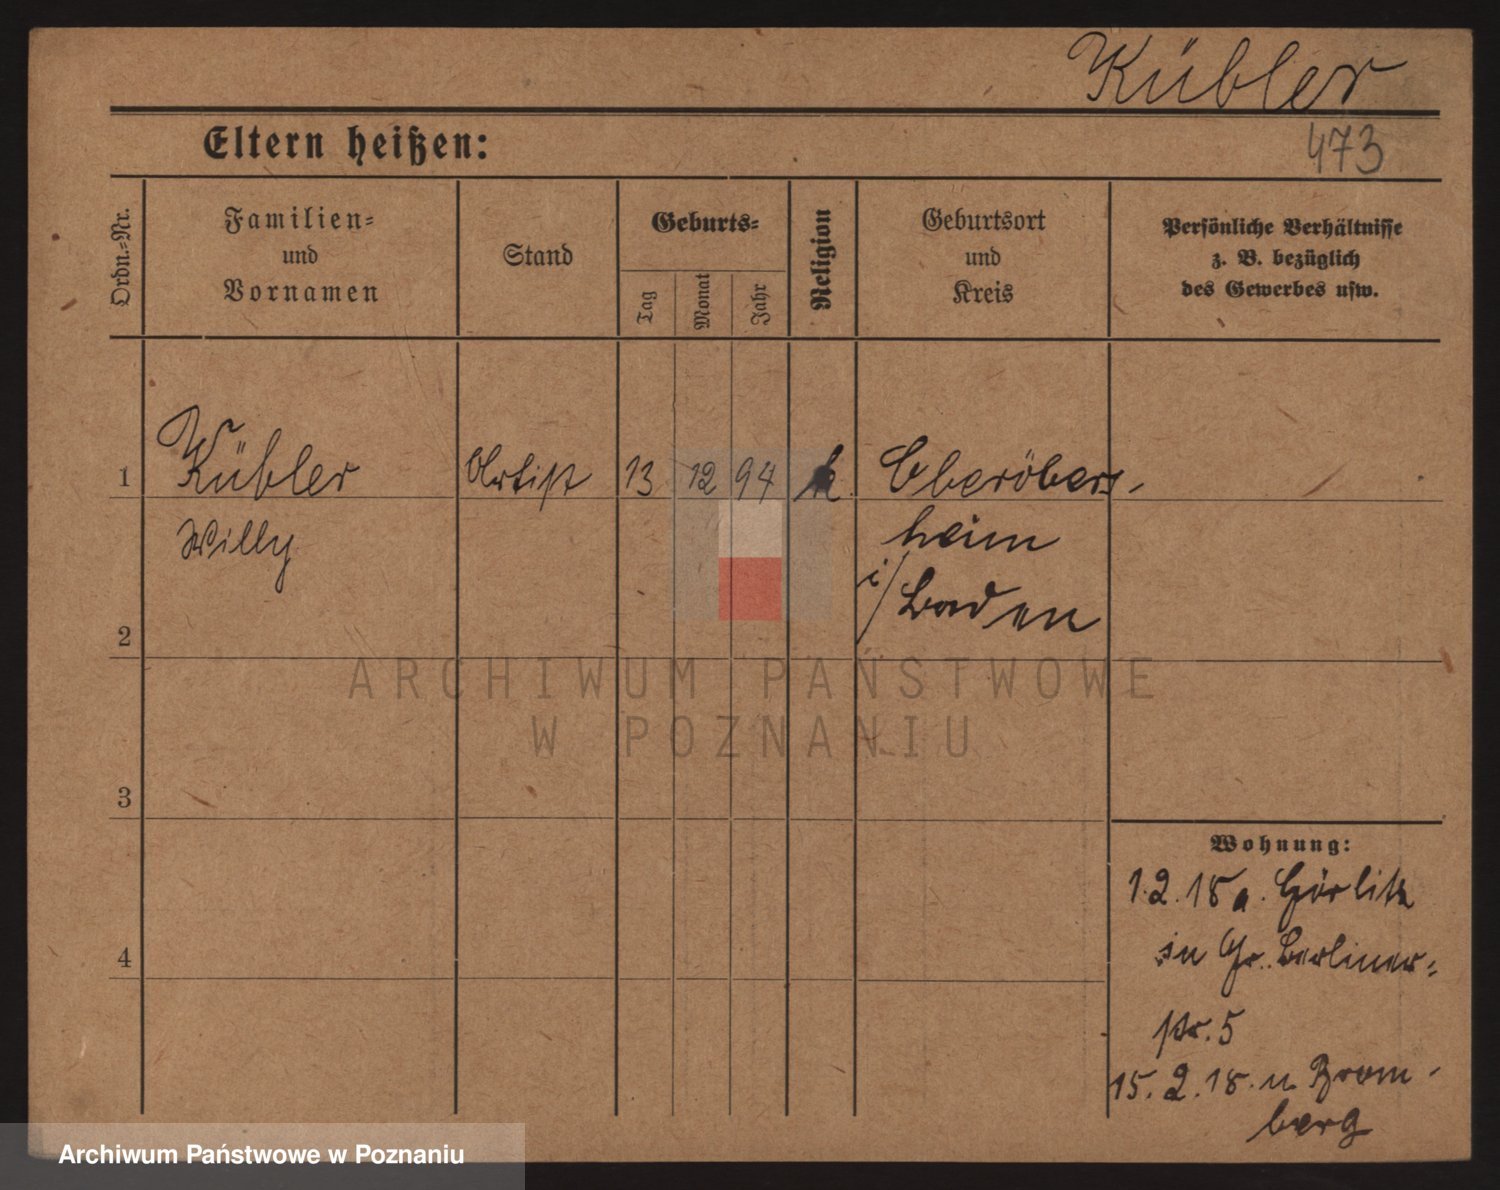 Kübler
Eltern heißen:
473
Ordn.=Nr.
Familien=
und
Vornamen
Stand
Geburts=
Tag
Monat
Jahr
Religion
Geburtsort
und
Kreis
Persönliche Verhältnisse
z. B. bezüglich
des Gewerbes usw.
1
Kübler
Artist
13
12
94
k
Oberöbers-
Willy
heim
i/Baden
2
ARCHIWUM PAŃSTWOWE
W POZNANIU
3
4
Wohnung:
1.2.18 a. Görlitz
in Gr. Berliner=
str. 5
15.2.18. n Brom-
berg
Archiwum Państwowe w Poznaniu